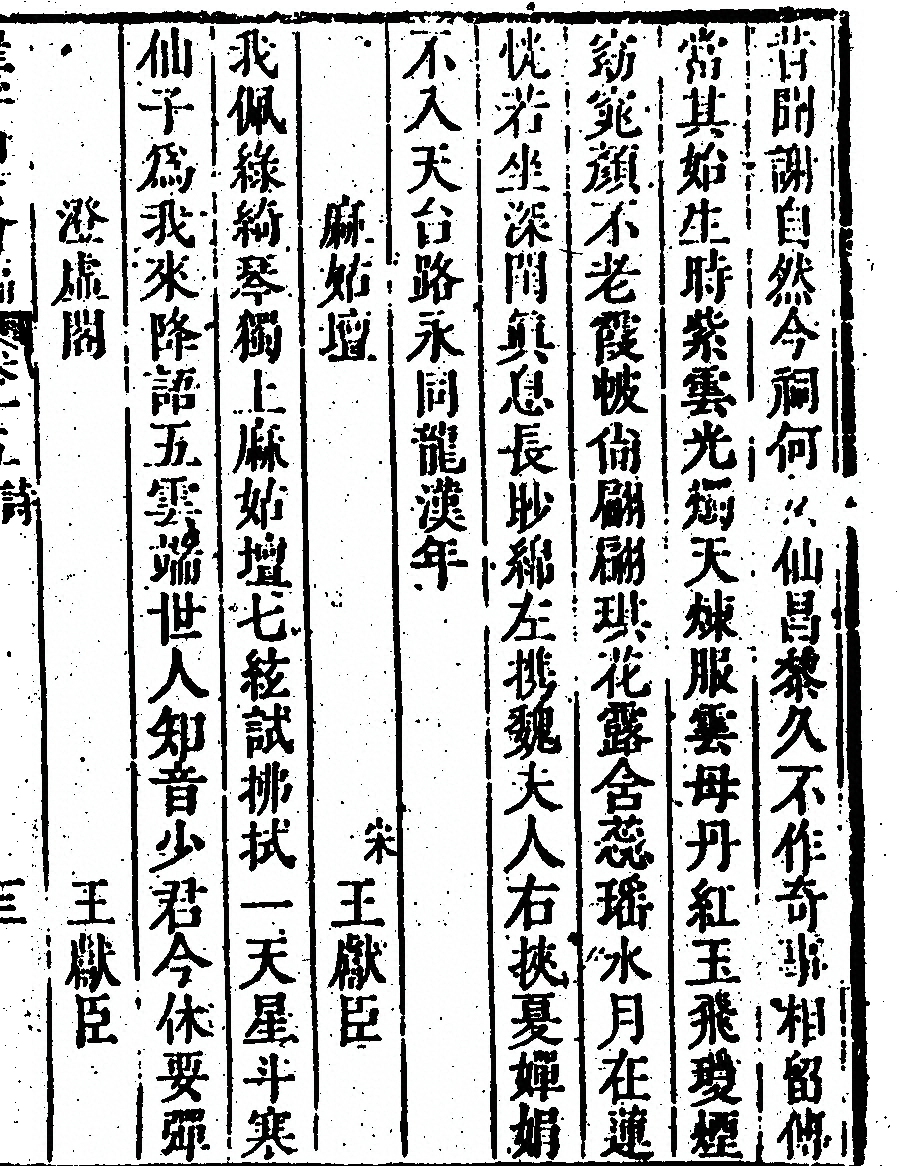 昔聞謝自然今祠何仙昌黎久不作奇事相留傳
當其始生時紫雲光燭天煉服雲母丹紅玉飛瓊煙
窈窕顏不老霞帔尙翩翩琪花露含蕊瑤水月在蓮
恍若坐深閨氣息長眇綿左携魏夫人右挾夏嬋娟
不入天台路永同龍漢年
麻姑壇 宋 王獻臣
我佩綠綺琴獨上麻姑壇七絃試拂拭一天星斗寒
仙子爲我來降語五雲端世人知音少君今休要彈
澄虛閣 王獻臣
詩 三